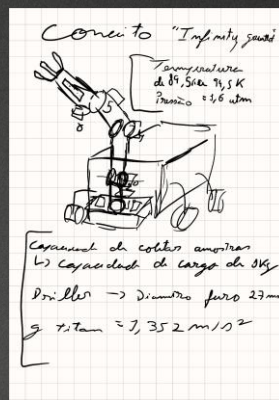 Conceito "Infinity gauntl
Temperatura
de 89,5 a 94,5 K
Pressão = 1,6 atm
Capacidade de coletar amostras
↳ capacidade de carga de kg
Driller → Diametro furo 27 m
g titan = 1,352 m/s²